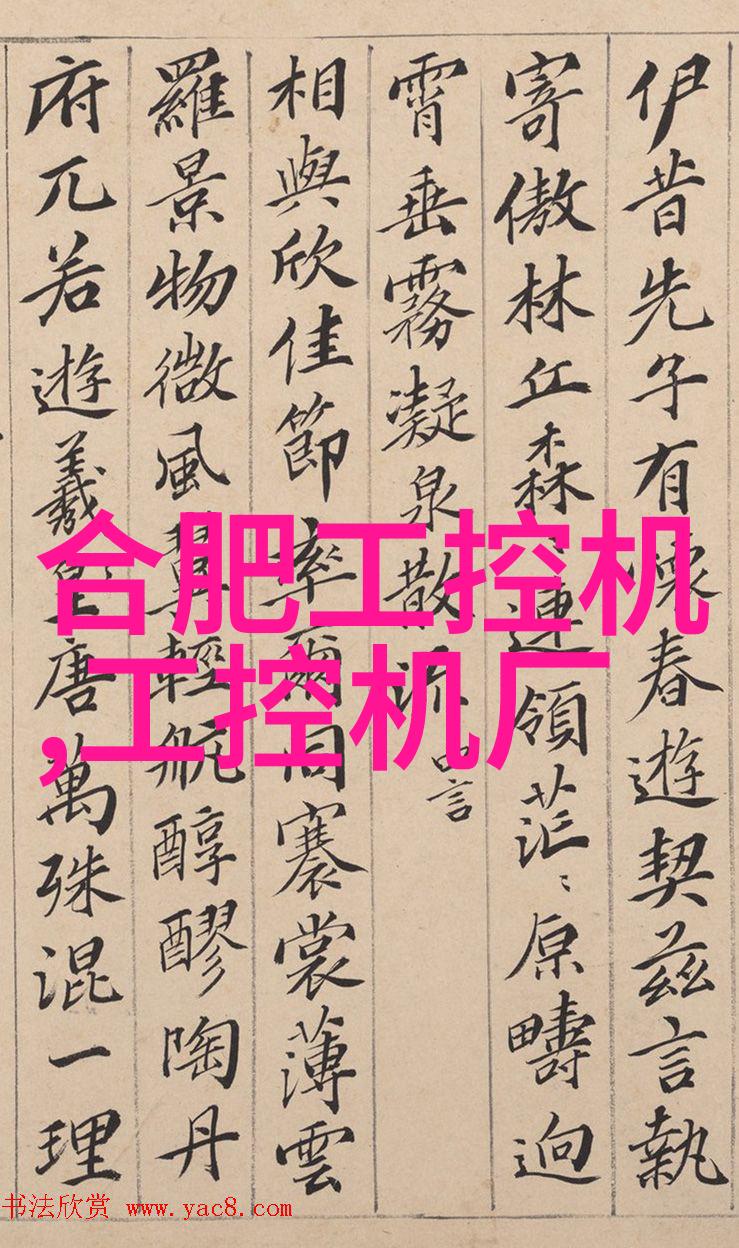 伊昔先子有懷春遊契茲言執
寄傲林丘森〻連領茫〻原疇迥
霄垂霧凝泉散流 四言
相與欣佳節率爾同褰裳薄雲
羅景物微風翼輕航醇醪陶丹
府兀若遊羲皇唐萬殊混一理
合肥工控机
,工控机厂
书法欣赏 www.yac8.com